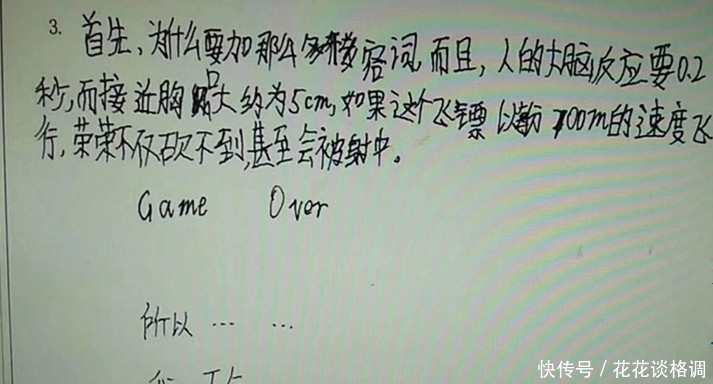 3. 首先,为什么要加那么多形容词,而且,人的大脑反应要0.2
秒,而接近胸口大约为5cm,如果这个飞镖以每秒100m的速度飞
行,荣荣不仅砍不到,甚至会被射中。
Game Over
所以 … …
快传号/花花谈格调